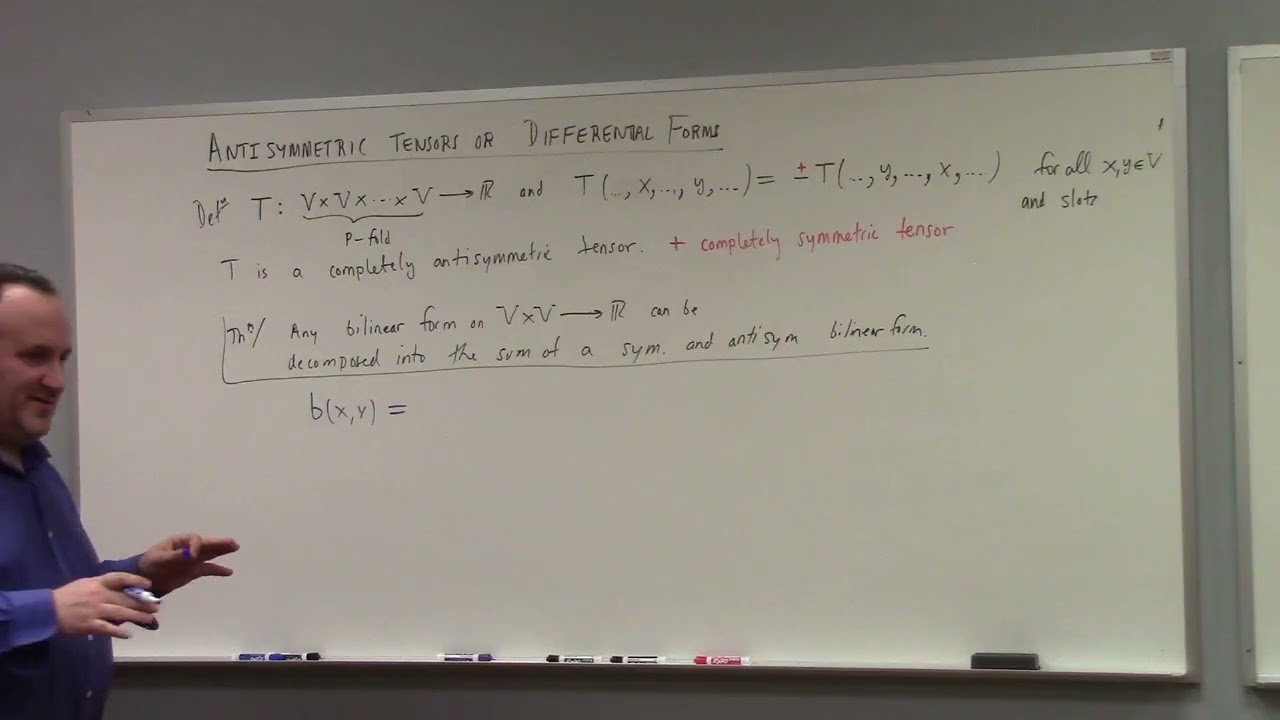 ANTISYMMETRIC TENSORS OR DIFFERENTIAL FORMS
Defⁿ T: V×V×···×V → ℝ and T(..., x,..., y,...) = ±T(..., y, ..., x, ...) for all x,y∈V
p-fold and slots
T is a completely antisymmetric tensor. + completely symmetric tensor
Thᵐ/ Any bilinear form on V×V → ℝ can be
decomposed into the sum of a sym. and antisym bilinear form.
b(x,y) =